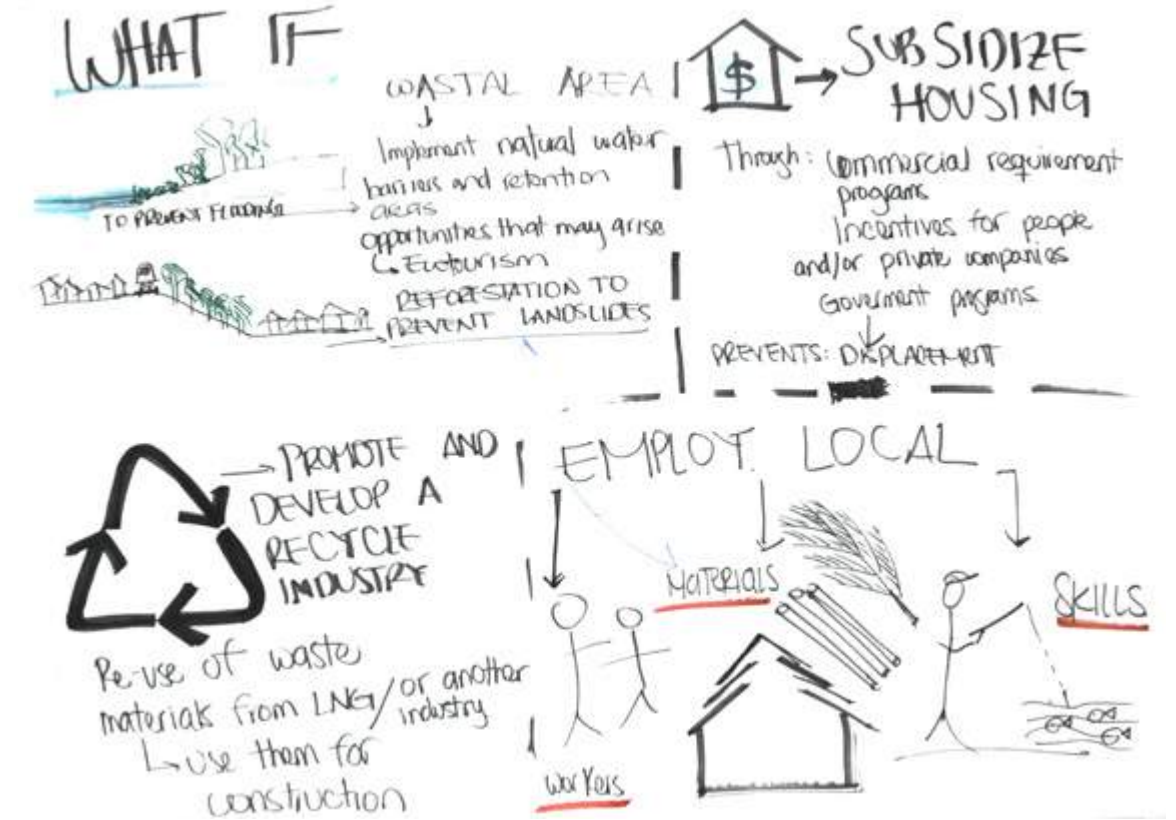 WHAT IF
COASTAL AREA
Implement natural water
barriers and retention
areas
TO PREVENT FLOODING
opportunities that may arise
Ecotourism
REFORESTATION TO
PREVENT LANDSLIDES
$
SUBSIDIZE
HOUSING
Through: Commercial requirement
programs
Incentives for people
and/or private companies
Goverment programs
PREVENTS: DISPLACEMENT
PROMOTE AND
DEVELOP A
RECYCLE
INDUSTRY
Re-use of waste
materials from LNG/or another
industry
use them for
construction
EMPLOY LOCAL
workers
MATERIALS
SKILLS